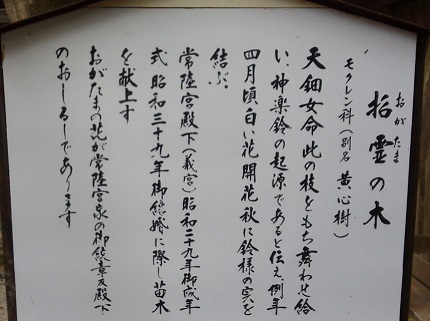 おがたま
招霊の木
モクレン科(別名 黄心樹)
天鈿女命此の枝をもち舞わせ給
い、神楽鈴の起源であると伝え、例年
四月頃白い花開花秋に鈴様の実を
結ぶ。
常陸宮殿下(義宮)昭和二十九年御成年
式 昭和三十九年御結婚に際し苗木
を献上す
おがたまの花が常陸宮家の御紋章及殿下
のおしるしであります